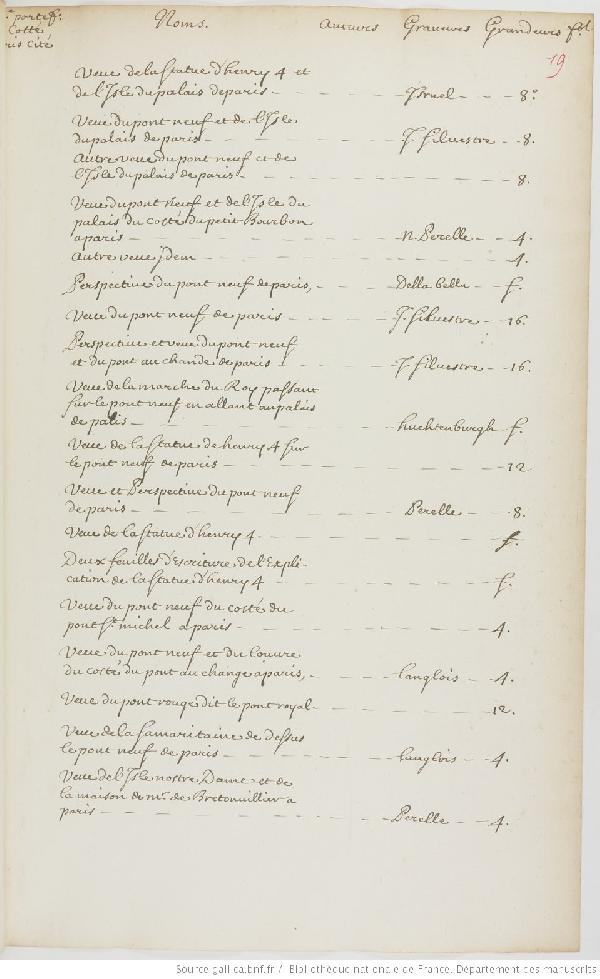 portef. Noms. Auteurs Graveurs Grandeurs fol
Cotté
ris cité
19
Veue de la statue d'henry 4 et
de l'Isle du palais de paris - Israel - 8°
Veue du pont neuf et de l'Isle
du palais de paris - J. Silvestre - 8.
Autre veue du pont neuf et de
l'Isle du palais de paris - 8.
Veue du pont neuf et de l'Isle du
palais du costé du petit Bourbon
a paris - N. Perelle - 4.
Autre veue ydem - 4.
Perspective du pont neuf de paris, - Della bella - f.
Veue du pont neuf de paris - J. Silvestre - 16.
Perspective et veue du pont neuf
et du pont au change de paris - J. Silvestre - 16.
Veue de la marche du Roy passant
sur le pont neuf en allant au palais
de paris - huchtenburgh f.
Veue de la statue de henry 4 sur
le pont neuf de paris - 12
Veue et Perspective du pont neuf
de paris - Perelle - 8.
Veue de la statue d'henry 4 - f.
Deux feuilles d'Escriture de l'Expli-
cation de la statue d'henry 4 - f.
Veue du pont neuf du costé du
pont St. michel a paris - 4.
Veue du pont neuf et du louvre
du costé du pont au change a paris, - langlois - 4.
Veue du pont rouge dit le pont royal - 12.
Veue de la samaritaine de dessus
le pont neuf de paris - langlois - 4.
Veue de l'Isle nostre Dame et de
la maison de mr. de Bretonvillier a
paris - Perelle - 4.
Source gallica.bnf.fr / Bibliothèque nationale de France. Département des manuscrits